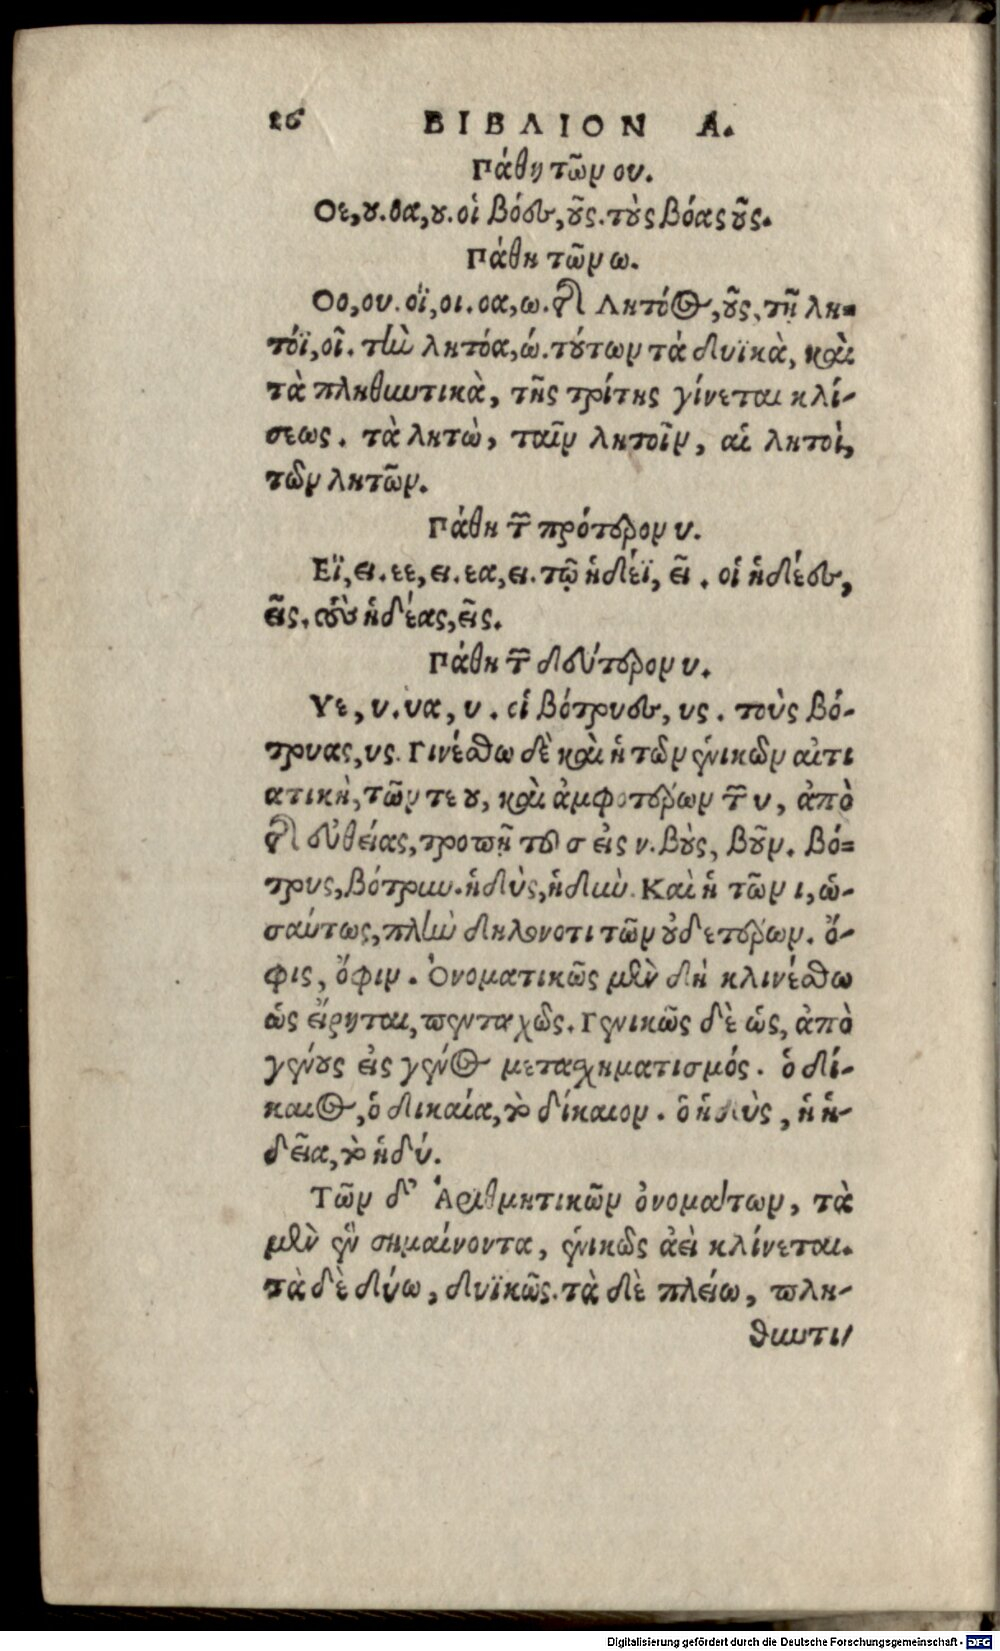 26 ΒΙΒΛΙΟΝ Α.
Πάθη τῶν ου.
Οε, ου. οα, ου. οἱ βόες, οῦς. τοὺς βόας οῦς.
Πάθη τῶν ω.
Οο, ου. οϊ, οι. οα, ω. τῆς Λητόος, οῦς, τῇ λη-
τόϊ, οῖ. τὴν λητόα, ώ. τούτων τὰ δυϊκὰ, καὶ
τὰ πληθυντικὰ, τῆς τρίτης γίνεται κλί-
σεως. τὰ λητὼ, ταῖν λητοῖν, αἱ λητοὶ,
τῶν λητῶν.
Πάθη τῶν πρότερον υ.
Εϊ, ει. εε, ει. εα, ει. τῷ ἡδέϊ, εῖ. οἱ ἡδέες,
εῖς. τοὺς ἡδέας, εῖς.
Πάθη τῶν δεύτερον υ.
Υε, υ. υα, υ. οἱ βότρυες, υς. τοὺς βό-
τρυας, υς. Γινέσθω δὲ καὶ ἡ τῶν ἑνικῶν αἰτι
ατικὴ, τῶν τε ου, καὶ ἀμφοτέρων τῶν υ, ἀπὸ
τῆς εὐθείας, τροπῇ τοῦ σ εἰς ν. βοὺς, βοῦν. βό-
τρυς, βότρυν. ἡδὺς, ἡδὺν. Καὶ ἡ τῶν ι, ὡ-
σαύτως, πλὴν δηλονοτι τῶν οὐδετέρων. ὄ-
φις, ὄφιν. Ὀνοματικῶς μὲν δὴ κλινέσθω
ὡς εἴρηται, πανταχῶς. Γενικῶς δὲ ὡς, ἀπὸ
γένους εἰς γένος μετασχηματισμός. ὁ δί-
καιος, ἡ δικαία, τὸ δίκαιον. ὁ ἡδὺς, ἡ ἡ-
δεῖα, τὸ ἡδύ.
Τῶν δ' Ἀριθμητικῶν ὀνομάτων, τὰ
μὲν ἓν σημαίνοντα, ἑνικῶς ἀεὶ κλίνεται.
τὰ δὲ δύω, δυϊκῶς. τὰ δὲ πλείω, πλη-
θυντι-
Digitalisierung gefördert durch die Deutsche Forschungsgemeinschaft - DFG